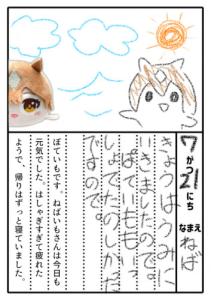 7がつ21にち
なまえ ねば
きょうはうみに
いきましたのです。
ぱていもいっ
しょでたのしかった
でなのです。
ぽていもです。ねばいもさんは今日も
元気でした。はしゃぎすぎて疲れた
ようで、帰りはずっと寝ていました。